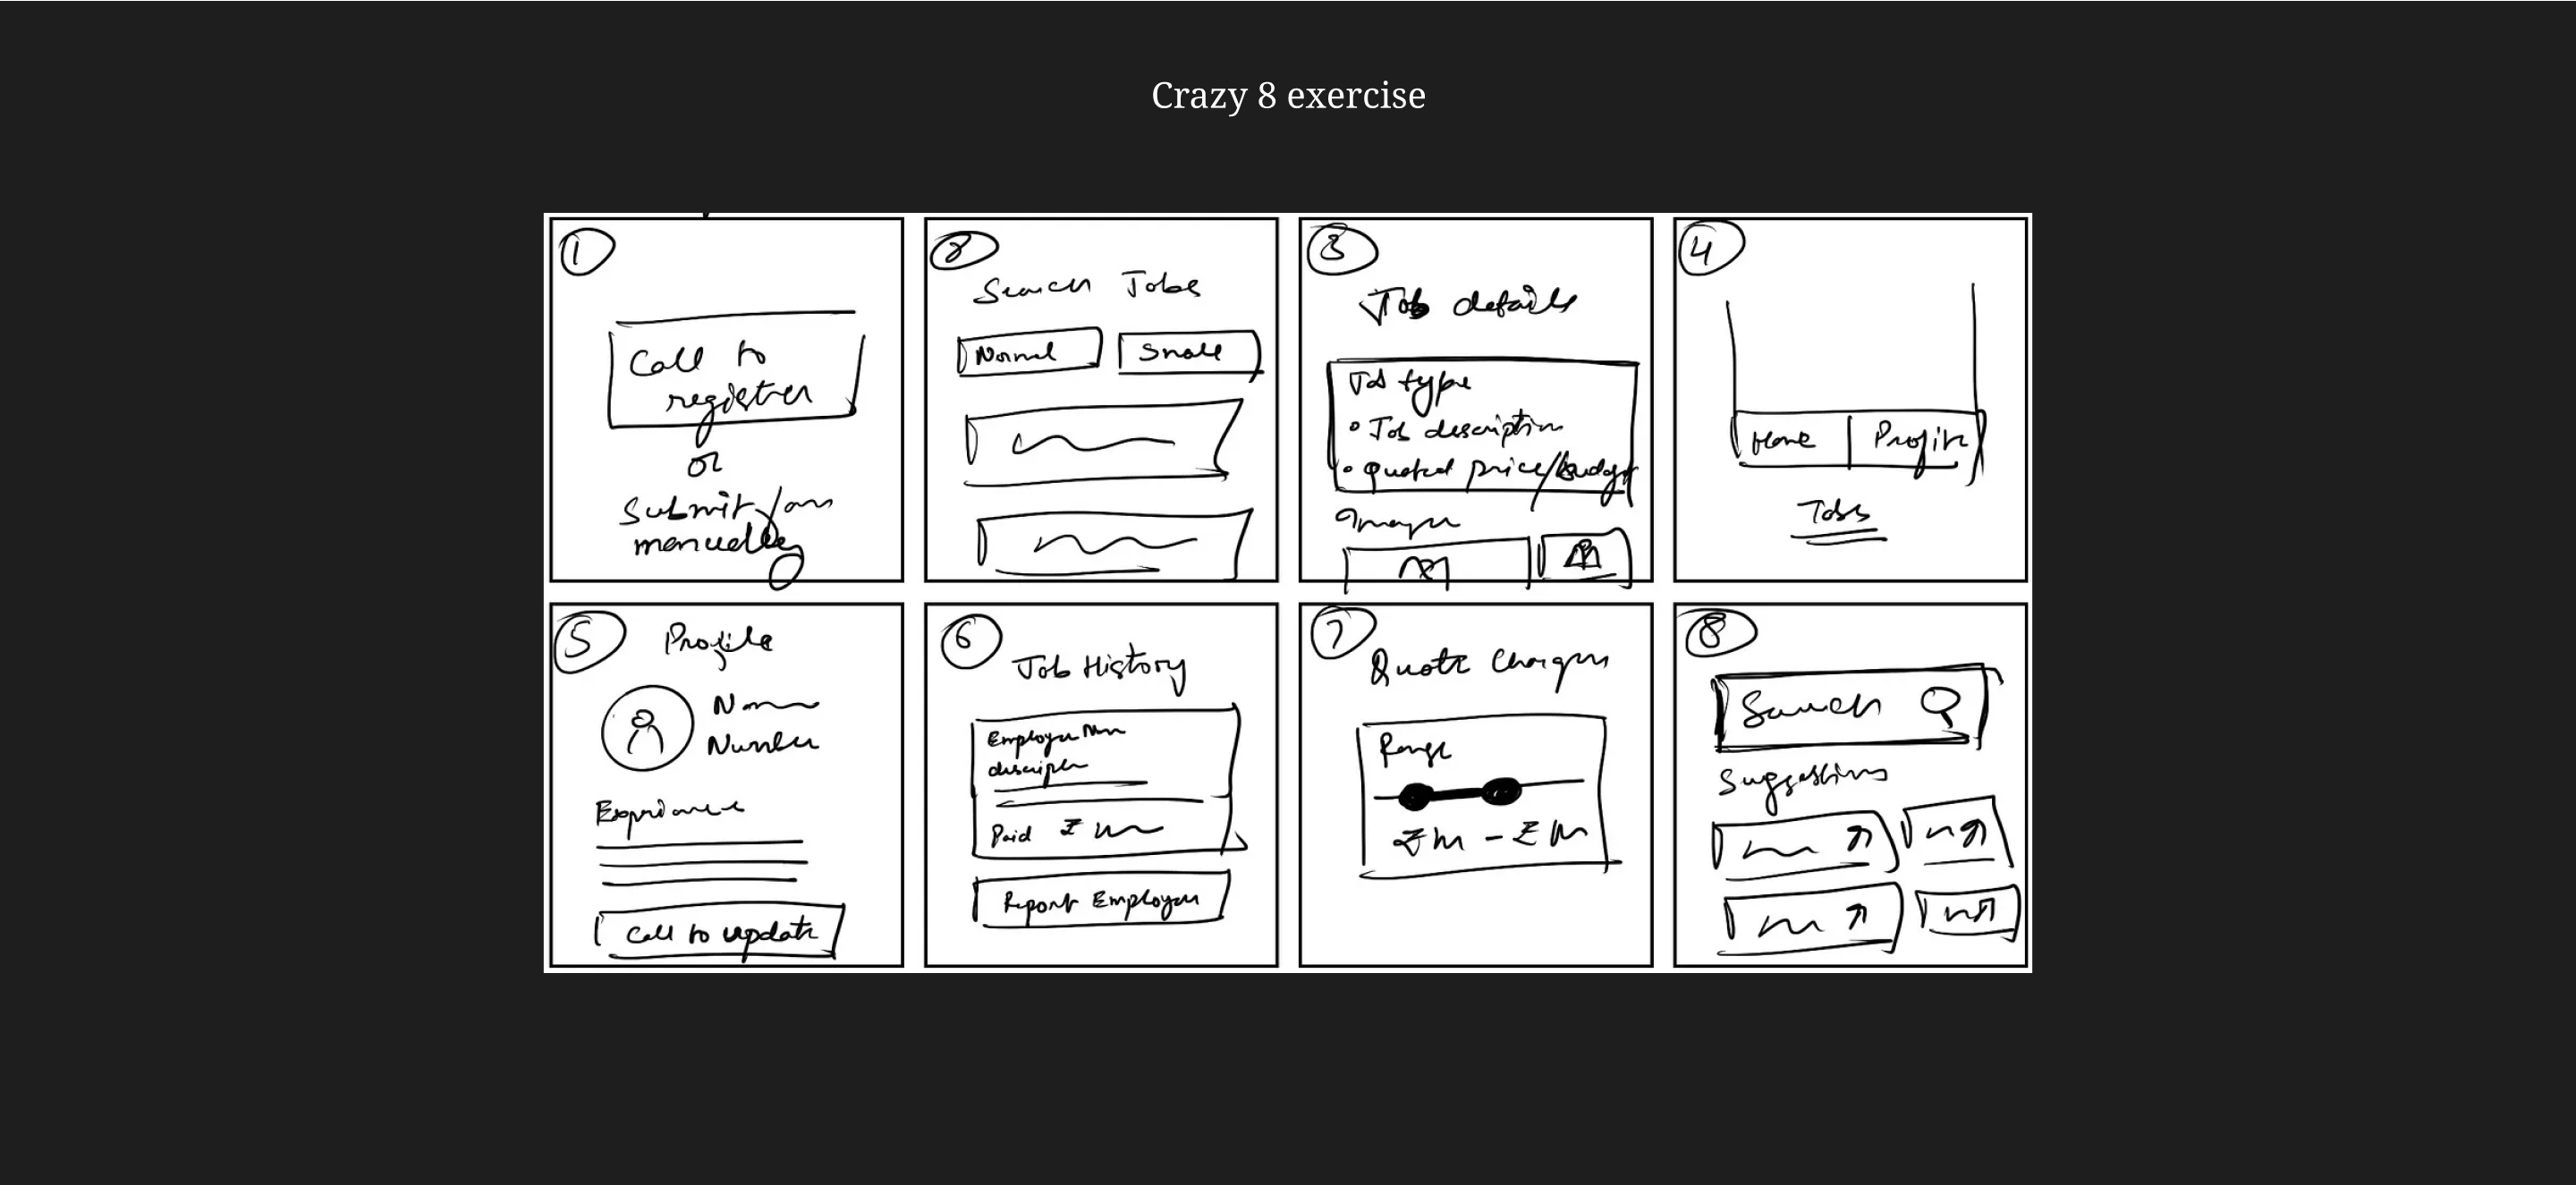 Crazy 8 exercise
1
Call to
register
or
Submit
manually
2
Search Jobs
Normal
Small
3
Job details
Job type
Job description
quoted price/budget
Images
4
Home
Profile
Tabs
5
Profile
Name
Number
Experience
Call to update
6
Job History
Employer
Paid ₹
Report Employer
7
Quote Charges
Range
₹ - ₹
8
Search
Suggestions